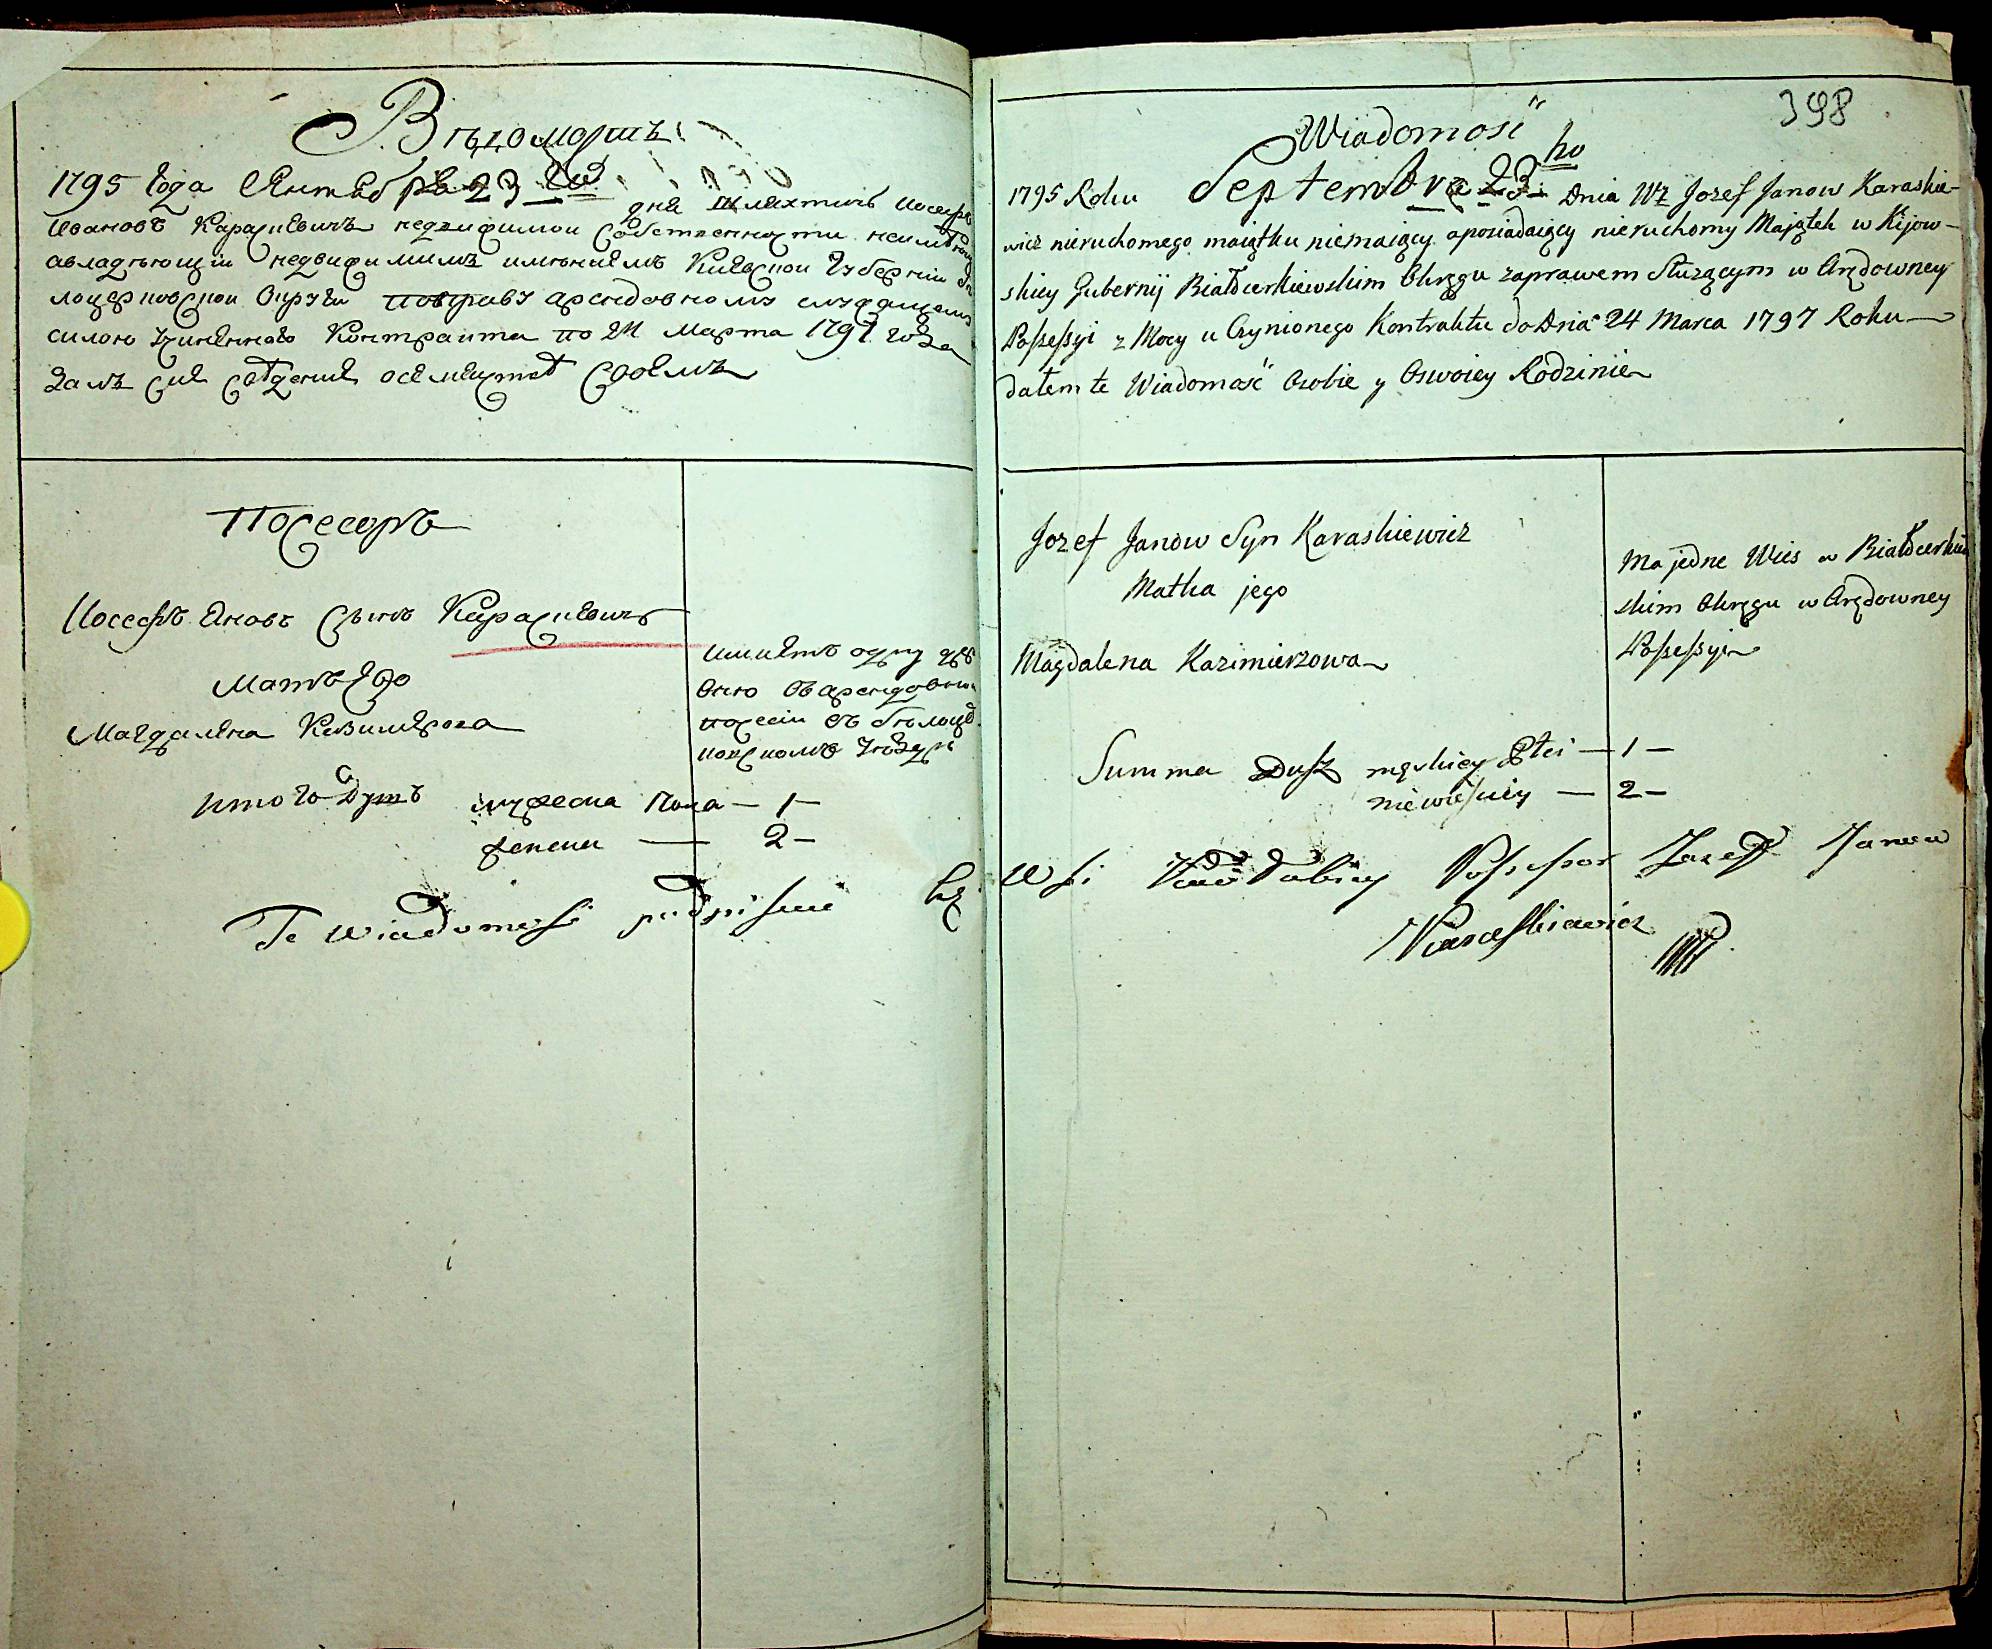 Вѣдомость
1795 года Сентебря 23 го дня Шляхтичь Иосефъ
Ивановъ Караскевичъ недвижимои собственности неимѣющи
авладѣющіи недвижимимъ имѣниемъ Киевскои Губерніи Бѣ
лоцерковскои Округи поправу арендовному служащему
силою учиненного Контракта по 24 Марта 1797 года
далъ сие сведение осемействе своемъ
Посесоръ
Иосефъ Яновъ Сынъ Караскевичъ
Мать Его
Магдалена Казимерова
имиетъ одну дере
вню въ арендовнои
посесіи въ белоцер
ковскомъ уезде
итого Душъ мужеска Пола — 1 —
женска — 2 —
Te Wiadomość podpisuie
398
Wiadomość
1795 Roku Septembra 23 ho Dnia WŻ Jozef Janow Karaskie-
wicz nieruchomego maiątku niemaiący aposiadaiący nieruchomy Majątek w Kijow-
skiey Gubernij Białocerkiewskim Okręgu zaprawem Służącym w Arędowney
Possessyi z Mocy u Czynionego Kontraktu do Dnia 24 Marca 1797 Roku
dałem te Wiadomość Osobie y Oswoiey Rodzinie
Jozef Janow Syn Karaskiewicz
Matka jego
Magdalena Kazimierzowa
Ma jedne Wieś w Białocerkiew
skim Okręgu w Arędowney
Possessyi
Summa Dusz męskiey Płci — 1 —
niewieśćiey — 2 —
Wsi Possessor Jozeff Janow
Karaskiewicz